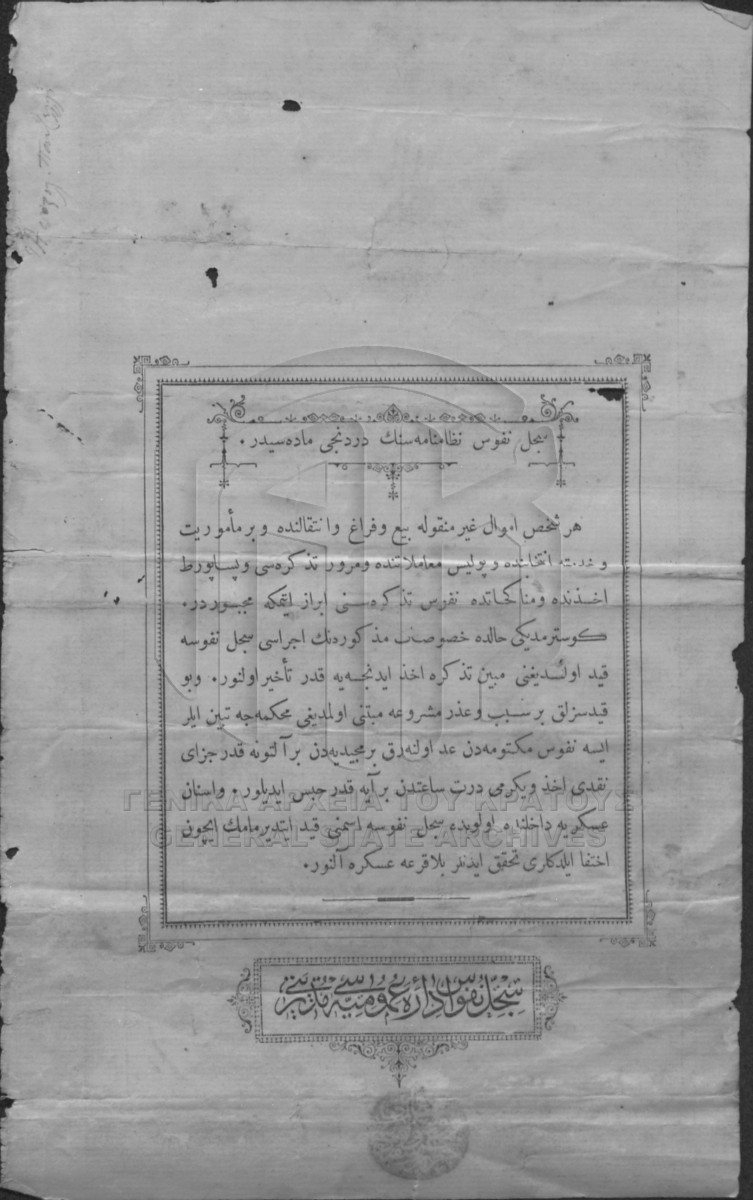 سجل نفوس نظامنامه‌سنك دردنجی ماده‌سیدر .
هر شخص اموال غیر منقوله بیع و فراغ و انتقالنده و بر مأموریت
و خدمته انتخابنده و پولیس معاملاتنده و مرور تذکره‌سی و پساپورط
اخذنده و مناکحاتده نفوس تذکره‌سنی ابراز ایتمکه مجبوردر .
کوسترمدیکی حالده خصوصات مذکوره‌نك اجراسی سجل نفوسه
قید اولندیغنی مبین تذکره اخذ ایدنجه‌یه قدر تأخیر اولنور . وبو
قیدسزلق بر سبب و عذر مشروعه مبتنی اولمدیغی محکمه‌جه تبین ایلر
ایسه نفوس مکتومه‌دن عد اولنه‌رق بر مجیدیه‌دن بر آلتونه قدر جزای
نقدی اخذ و یکرمی درت ساعتدن بر آیه قدر حبس ایدیلور . واسنان
عسکریه داخلنده اولوبده سجل نفوسه اسمنی قید ایتدیرمامك ایچون
اختفا ایلدکلری تحقق ایدنلر بلا قرعه عسکره آلنور .
سجل نفوس اداره عمومیه‌سی مدیریتی
ΓΕΝΙΚΑ ΑΡΧΕΙΑ ΤΟΥ ΚΡΑΤΟΥΣ
GENERAL STATE ARCHIVES